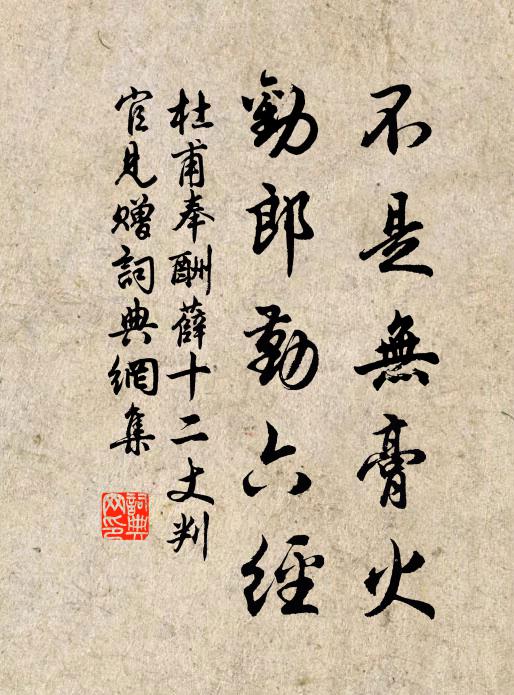 不是無膏火
勸郎勤六經
杜甫奉酬薛十二丈判
官見贈詞典網集
詞典
网印